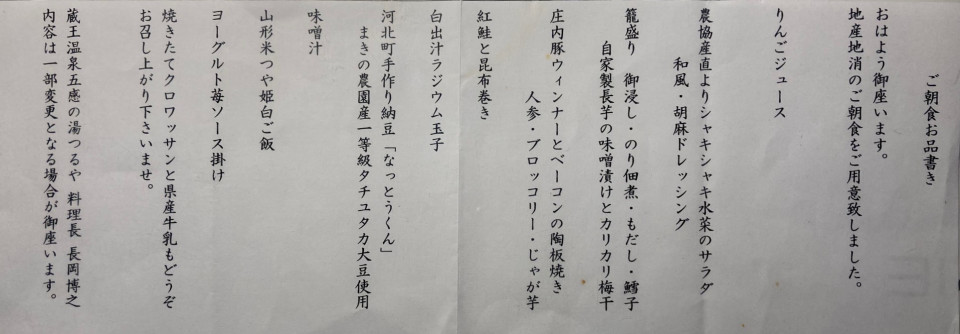 ご朝食お品書き
おはよう御座います。
地産地消のご朝食をご用意致しました。
りんごジュース
農協産直よりシャキシャキ水菜のサラダ
和風・胡麻ドレッシング
籠盛り 御浸し・のり佃煮・もだし・鱈子
自家製長芋の味噌漬けとカリカリ梅干
庄内豚ウィンナーとベーコンの陶板焼き
人参・ブロッコリー・じゃが芋
紅鮭と昆布巻き
白出汁ラジウム玉子
河北町手作り納豆「なっとうくん」
まきの農園産一等級タチユタカ大豆使用
味噌汁
山形米つや姫白ご飯
ヨーグルト苺ソース掛け
焼きたてクロワッサンと県産牛乳もどうぞ
お召し上がり下さいませ。
蔵王温泉五感の湯つるや 料理長 長岡博之
内容は一部変更となる場合が御座います。